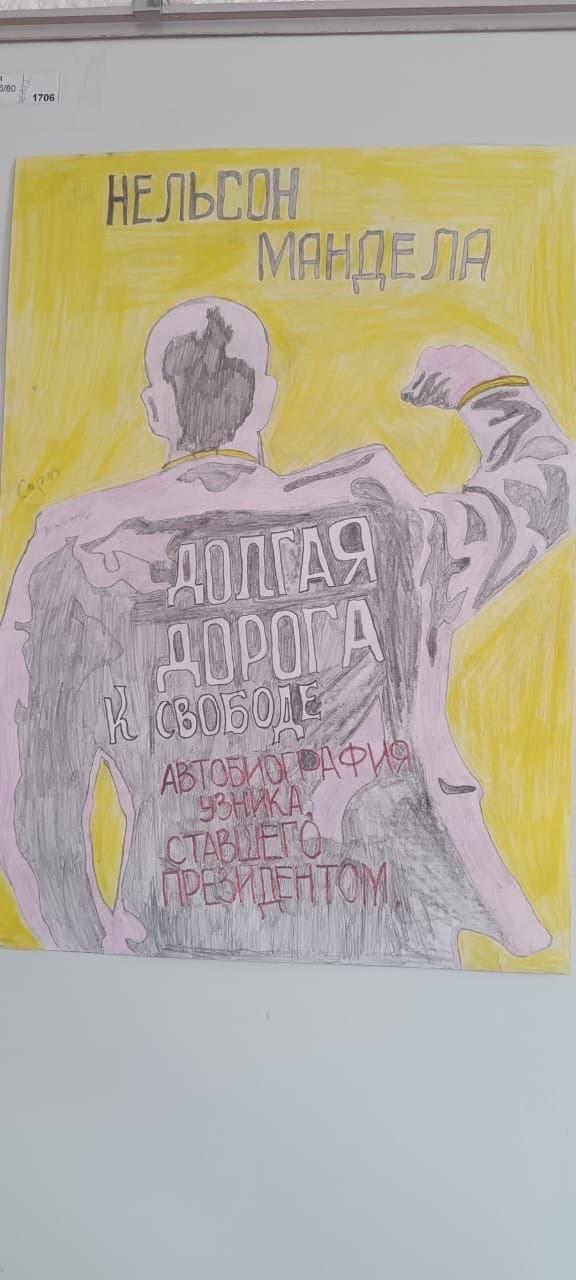 6/80
1706
НЕЛЬСОН
МАНДЕЛА
ДОЛГАЯ
ДОРОГА
К СВОБОДЕ
АВТОБИОГРАФИЯ
УЗНИКА,
СТАВШЕГО
ПРЕЗИДЕНТОМ.